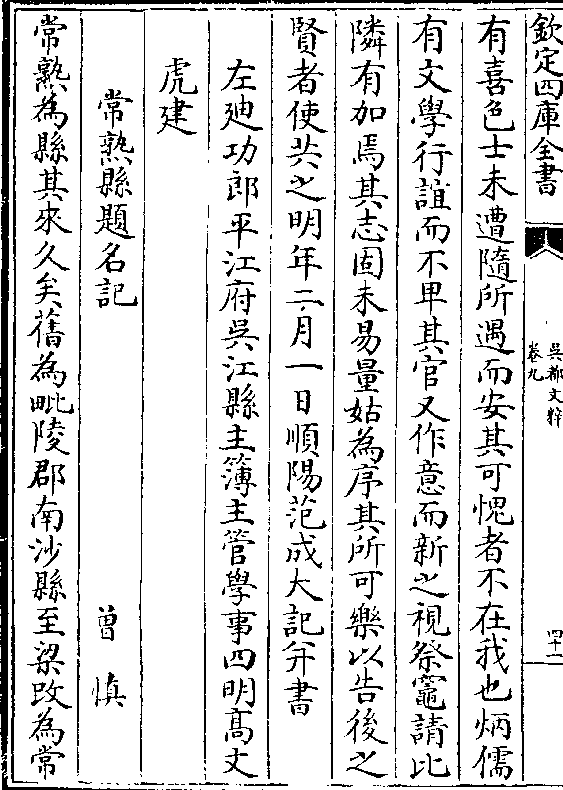 欽定四庫全書
吳都文粹
卷九
四十一
有喜色士未遭隨所遇而安其可愧者不在我也炳儒
有文學行誼而不卑其官又作意而新之視祭竈請比
隣有加焉其志固未易量姑為序其所可樂以告後之
賢者使共之明年二月一日順陽范成大記并書
左廸功郎平江府吳江縣主簿主管學事四明高文
虎建
常熟縣題名記
曾慎
常熟為縣其來久矣舊為毗陵郡南沙縣至梁改為常